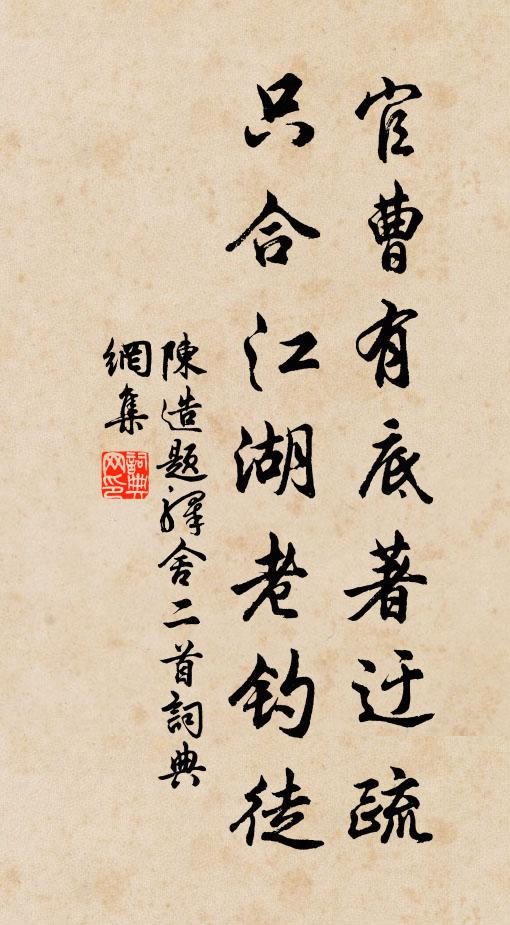 官曹有底著迂疏
只合江湖老釣徒
陳造題驛舍二首詞典
網集
詞典
网印